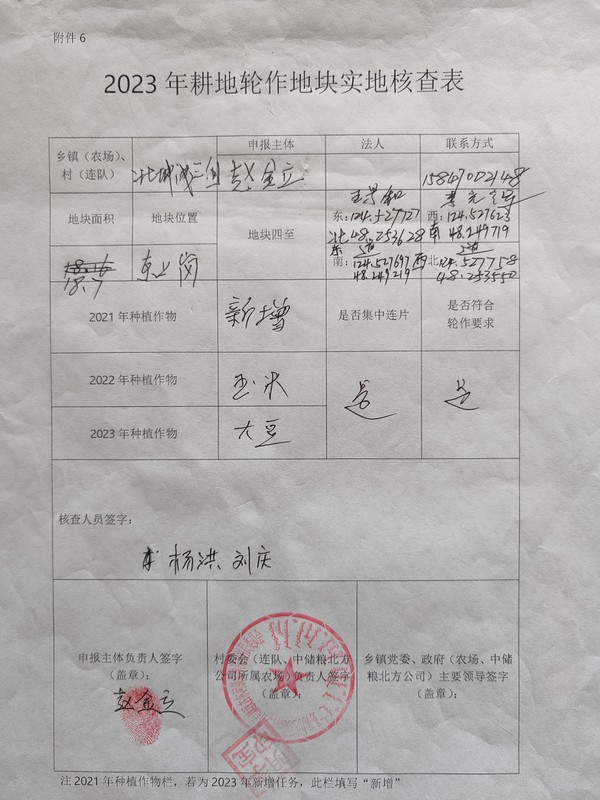 附件 6
2023 年耕地轮作地块实地核查表
乡镇（农场）、
村（连队）
申报主体
法人
联系方式
赵金立
15847002148
地块面积
地块位置
地块四至
东：
西：124.527623
北 48.253628
南 48.249719
南：124.527697
西
北：124.527758
48.249219
48.253550
18.16
18.7
东上岗
2021 年种植作物
新增
是否集中连片
是否符合
轮作要求
2022 年种植作物
玉米
是
是
2023 年种植作物
大豆
核查人员签字：
杨洪 刘庆
申报主体负责人签字
（盖章）：
赵金立
村委会（连队、中储粮北方
公司所属农场）负责人签字
（盖章）：
乡镇党委、政府（农场、中储
粮北方公司）主要领导签字
（盖章）：
注 2021 年种植作物栏，若为 2023 年新增任务，此栏填写“新增”